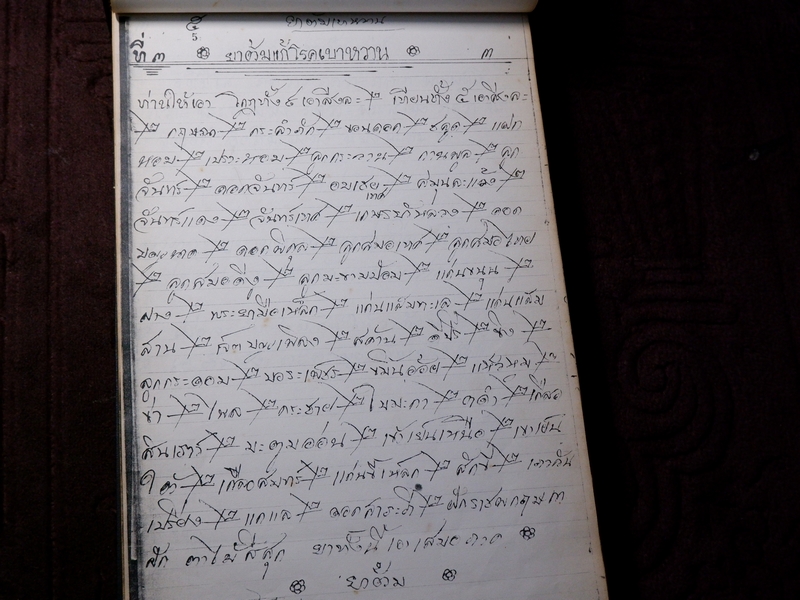 ๕
5
ยาต้มเบาหวาน
ที่ ๓ ยาต้มแก้โรคเบาหวาน ๓
ท่านให้เอา โกฏทั้ง ๕ เอาสิ่งละ ๒ เทียนทั้ง ๕ เอาสิ่งละ
๒ กฤษณา ๒ กระลำภัก ๒ ขอนดอก ๒ ชลูด ๒ แฝก
หอม ๒ เปราะหอม ๒ ลูกกระวาน ๒ กานพลู ๒ ลูก
จันทร์ ๒ ดอกจันทร์ ๒ อบเชยเทศ ๒ สมุนละแว้ง ๒
จันทร์แดง ๒ จันทร์เทศ ๒ เกษรบัวหลวง ๒ ดอก
บุนนาค ๒ ดอกพิกุล ๒ ลูกสมอเทศ ๒ ลูกสมอไทย
๒ ลูกสมอดีงู ๒ ลูกมะขามป้อม ๒ แก่นขนุน ๒
ฝาง ๒ พระยามือเหล็ก ๒ แก่นแสมทะเล ๒ แก่นแสม
สาน ๒ เจ็ตมูลเพลิง ๒ สค้าน ๒ ดีปลี ๒ ขิง ๒
ลูกกระดอม ๒ บอระเพ็ชร ๒ ขมิ้นอ้อย ๒ แห้วหมู ๒
ข่า ๒ ไพล ๒ กระชาย ๒ ใบมะกา ๒ ๒ เกลือ
สินเธาว์ ๒ มะตูมอ่อน ๒ เข้าเย็นเหนือ ๒ เขาเย็น
ใต้ ๒ เกลือสมุทร์ ๒ แก่นขี้เหล็ก ๒ สักขี ๒ เถาวัน
เปรียง ๒ แกแล ๒ ดอกสาระภี ๒ ฝักราชพฤกษ ๓
ฝัก ตาไม้สีสุก ยาทั้งนี้เอาเสมอภาค
ยาต้ม